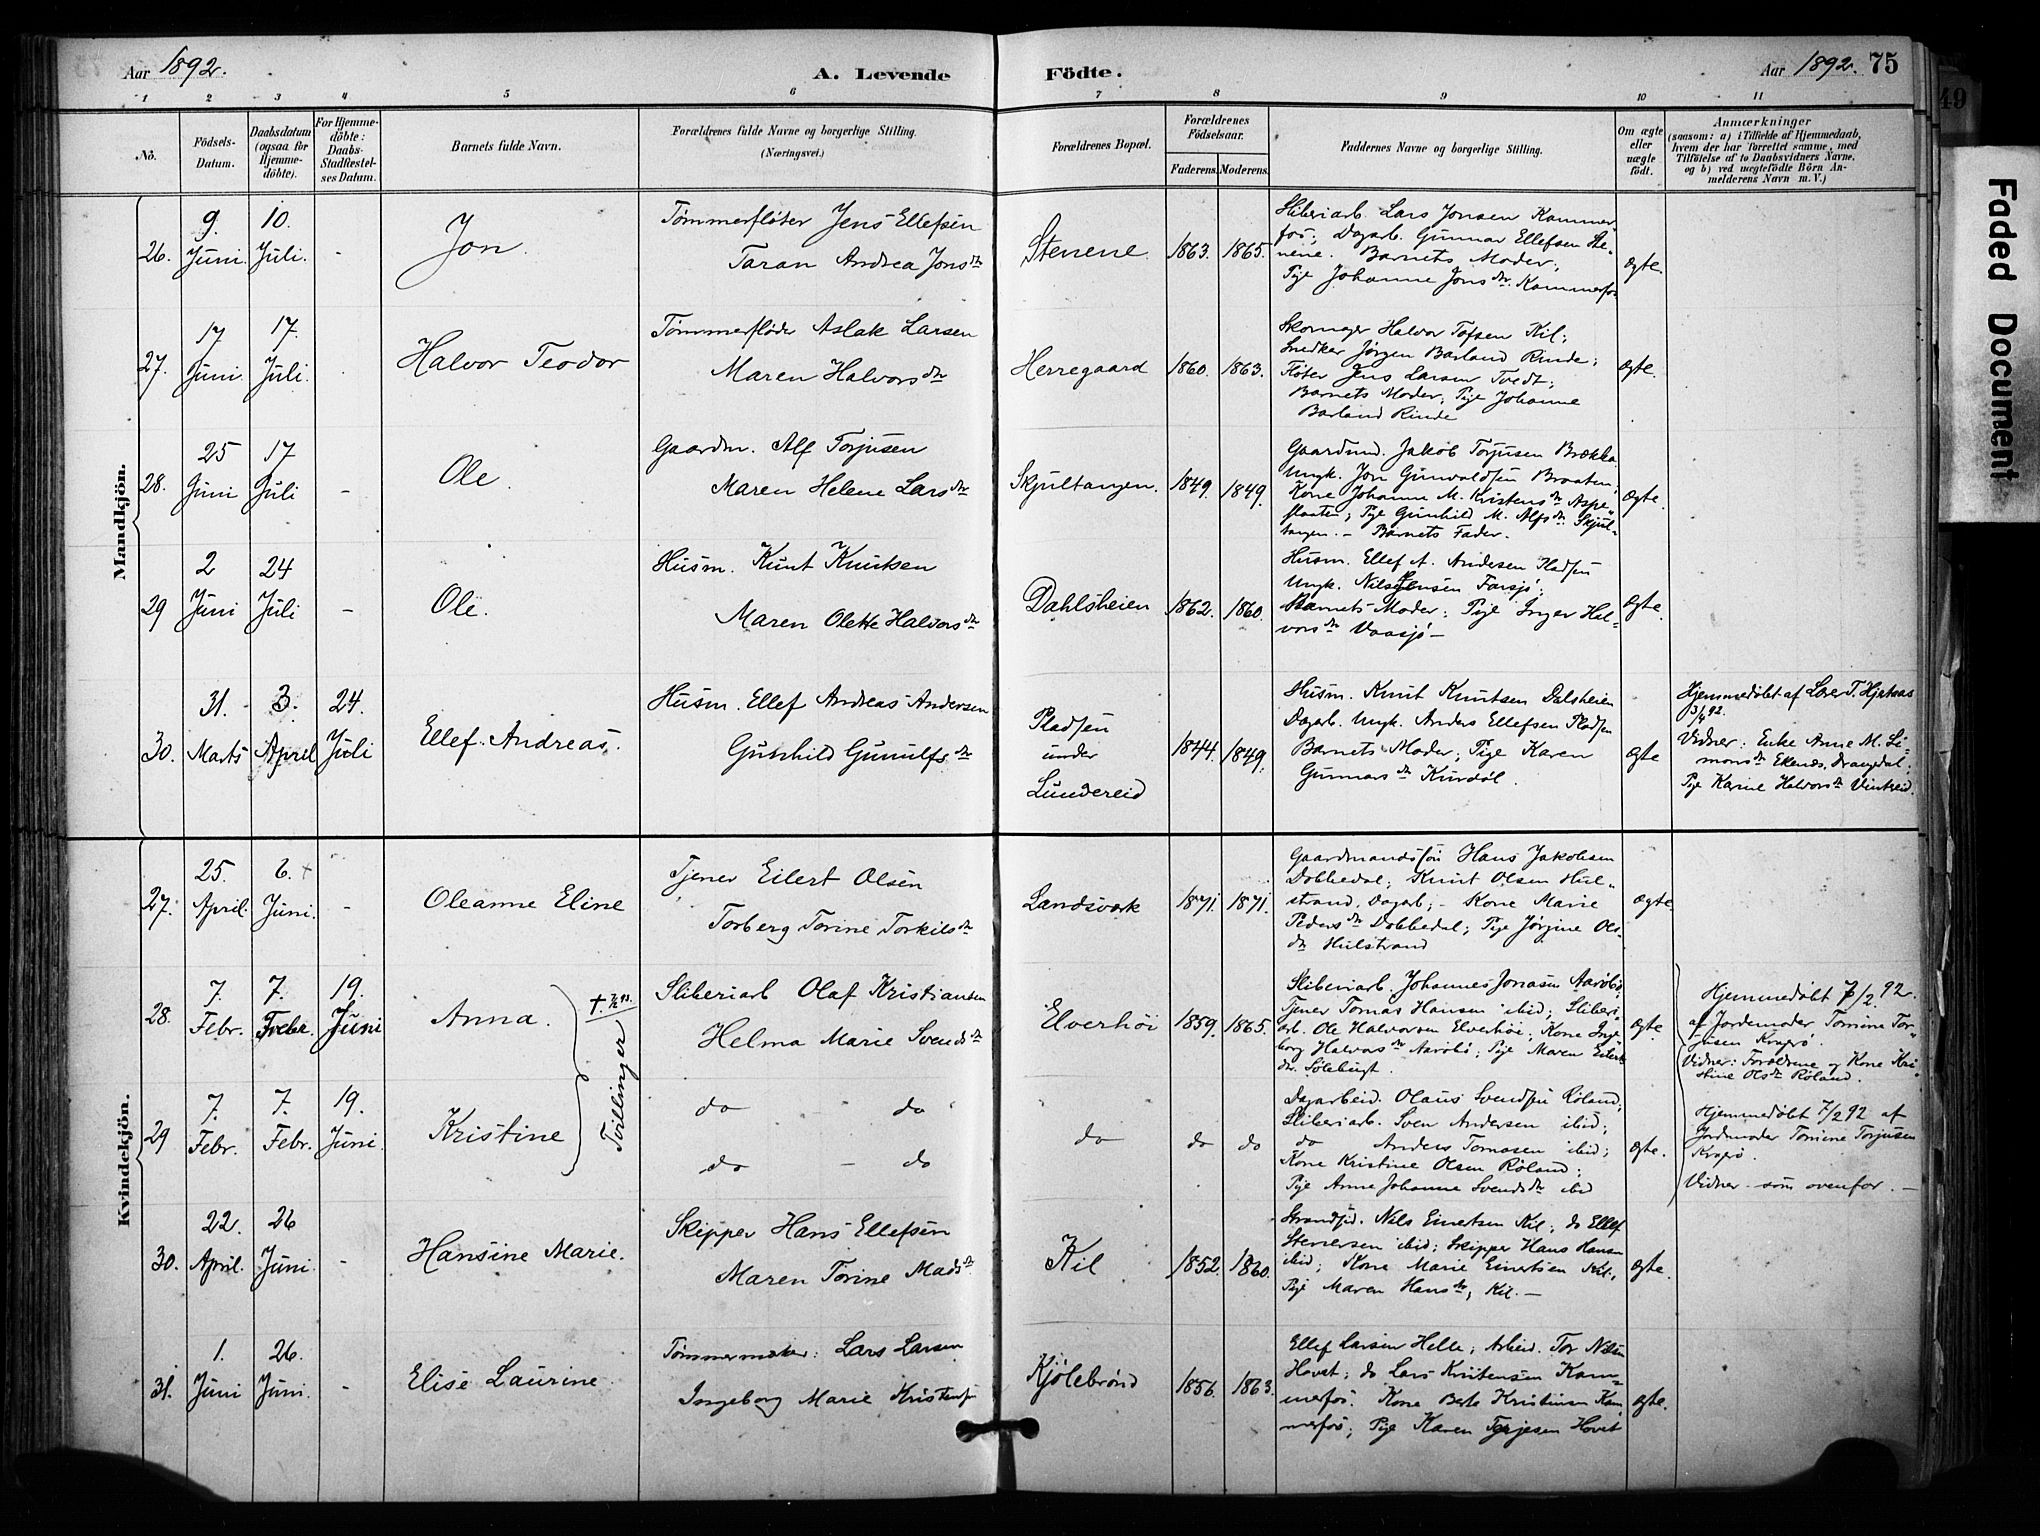 Aar 1892. A. Levende Födte. Aar 1892. 75
1 2 3 4 5 6 7 8 9 10 11
No.
Födsels-
Datum.
Daabsdatum
(ogsaa for
Hjemme-
döbte).
For Hjemme-
döbte:
Daabs-
Stadfæstel-
ses Datum.
Barnets fulde Navn.
Forældrenes fulde Navne og borgerlige Stilling.
(Næringsvei.)
Forældrenes Bopæl.
Forældrenes
Födselsaar.
Faderens. Moderens.
Faddernes Navne og borgerlige Stilling.
Om ægte
eller
uægte
födt.
Anmærkninger
(saasom: a) i Tilfælde af Hjemmedaab,
hvem der har forrettet samme, med
Tilföielse af to Daabsvidners Navne,
og b) ved uægtefödte Börn An-
melderens Navn m. V.)
Mandkjön.
26. 9. Juni 10. Juli. -
Jon
Tømmerfløter Jens Ellefsen
Taran Andrea Jonsdtr
Stenene 1863. 1865.
Sliberiarb Lars Jonsen Kammer
fos; Dagarb. Gunnar Ellefsen Ste-
nene. Barnets Moder;
Pige Johanne Jonsdtr. Kammerfos
ægte.
27. 17 Juni 17. Juli.
Halvor Teodor
Tømmerfløder Aslak Larsen
Maren Halvorsdtr
Herregaard 1860. 1863.
Skomager Halvor Tofsen Kil;
Snedker Jørgen Barland Rinde;
Jens Larsen Tvedt;
Barnets Moder; Pige Johanne
Barland Rinde
ægte.
28. 25 Juni 17 Juli -
Ole.
Gaardm. Alf Torjusen
Maren Helene Larsdtr
Skjultangen. 1849. 1849.
Gaardmd. Jakob Torjusen Brækka
Ungk. Jon Gunvaldsen Braaten,
Kone Johanne M. Kristensdtr Aspe-
flaaten; Pige Gunhild M. Alfsdtr Skjul-
tangen. - Barnets Fader.
ægte.
29 2 Juni 24 Juli -
Ole.
Husm. Knut Knutsen
Maren Olette Halvorsdtr
Dahlsheien 1862. 1860.
Husm. Ellef A. Andersen Pladsen
Ungk. Nils Jensen Farsjø;
Barnets Moder; Pige Inger Hal-
vorsdtr Vaasjø -
ægte.
30. 31. Marts 3. April 24. Juli
Ellef Andreas.
Husm. Ellef Andreas Andersen
Gunhild Gunulfsdtr
Pladsen
under
Lundereid
1844. 1849.
Husm. Knut Knutsen Dalsheien
Dagarb. Ungk. Anders Ellefsen Pladsen
Barnets Moder; Pige Karen
Gunnarsdtr Kurdøl.
ægte
Hjemmedøbt af Lars T. Hjatsas
3/4 92.
Vidner: Enke Anne M. Si-
monsdtr Ekenes, Drangedal;
Pige Karine Halvorsdtr Vintreid.
Kvindekjön.
27. 25. April. 6. Juni. -
Oleanne Eline
Tjener Eilert Olsen
Torberg Torine Torkilsdtr
Landsværk 1871. 1871.
Gaardmandssøn Hans Jakobsen
Dobbedal; Knut Olsen Hul-
strand, Dagarb; - Kone Marie
Pedersdtr Dobbedal; Pige Jørgine Ols-
dtr Hulstrand
ægte.
28. 7. Febr. 7. Febr. 19. Juni
Anna.
† 7/2 93.
Tvillinger
Sliberiarb Olaf Kristiansen
Helma Marie Svendsdtr
Elverhöi 1859. 1865.
Sliberiarb. Johannes Jonasen Aarøbø,
Tjener Tomas Hansen ibid; Sliberi
arb. Ole Halvorsen Elverhöi; Kone Inge-
borg Halvorsdtr Aarøbø; Pige Maren Eilerts
dtr. Sølebugt.
ægte.
Hjemmedøbt 7/2 92.
af Jordemoder Tomine Tor-
jusen Kragerø.
Vidner: Forældrene og Kone Kri-
stine Olsdtr Røland.
29 7. Febr. 7. Febr. 19. Juni
Kristine
do do
do - do
do do do
Dagarbeid. Olaus Svendsen Røland;
Sliberiarb. Sven Andersen ibid;
do Anders Tomasen ibid;
Kone Kristine Olsen Røland;
Pige Anne Johanne Svendsdtr ibid
ægte.
Hjemmedøbt 7/2 92 af
Jordmoder Tomine Torjusen
Kragerø.
Vidner som ovenfor. -
30. 22. April. 26 Juni -
Hansine Marie.
Skipper Hans Ellefsen
Maren Torine Madsdtr
Kil 1852. 1860.
Strandsid. Nils Einertsen Kil; do Ellef
Stenersen ibid; Skipper Hans Hansen
ibid; Kone Marie Einertsen Kil,
Pige Maren Hansdtr, Kil. -
ægte.
31. 1. Juni 26. Juni. -
Elise Laurine
Tømmermester: Lars Larsen
Ingeborg Marie Kristensen
Kjölebrønd 1856. 1863.
Ellef Larsen Helle; Arbeid. Tor Nilsen
Hovet; do Lars Knutsen Kam-
merfos. Kone Berte Kristensen Kam
merfos; Pige Karen Terjesen Hovet
ægte.
Faded Document
49